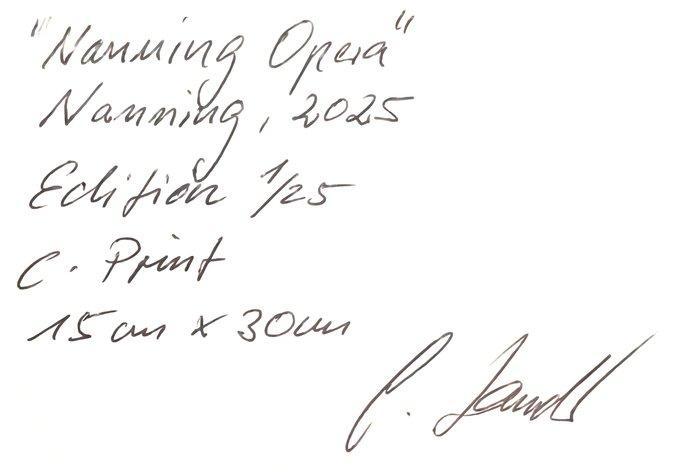 "Nanning Opera"
Nanning, 2025
Edition 1/25
C. Print
15 cm x 30 cm